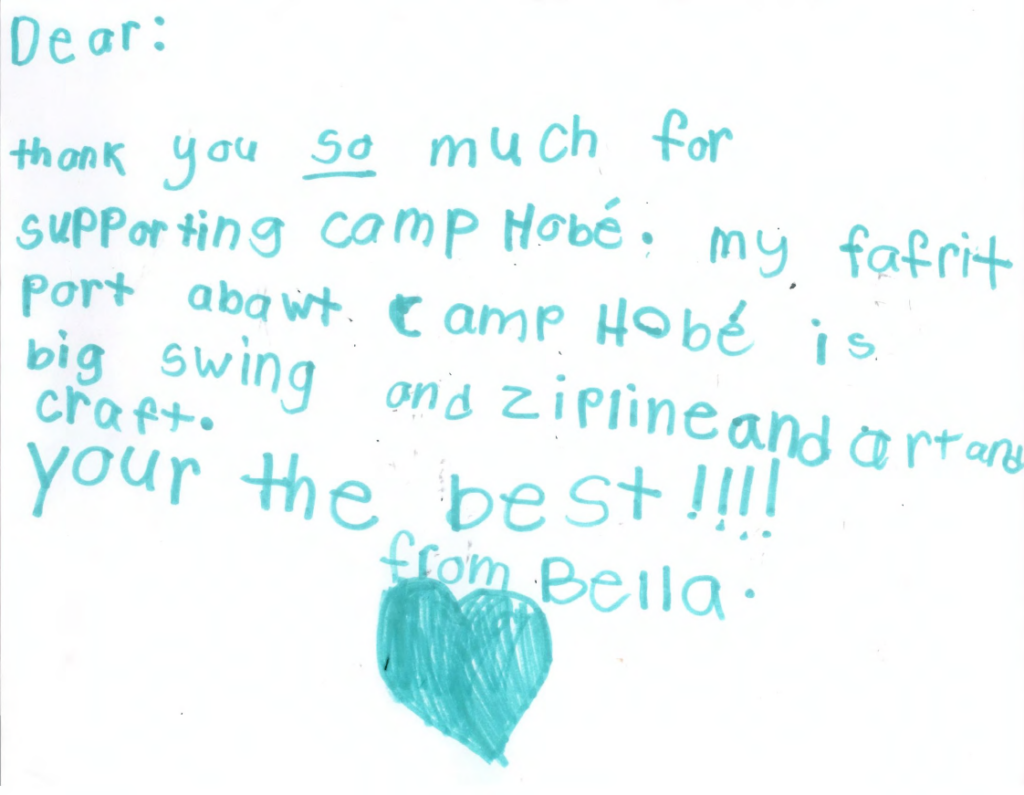 Dear:
thank you so much for
supporting camp Hobé. my fafrit
part abawt camp Hobé is
big swing and zipline and art and
craft.
your the best!!!!
from Bella.